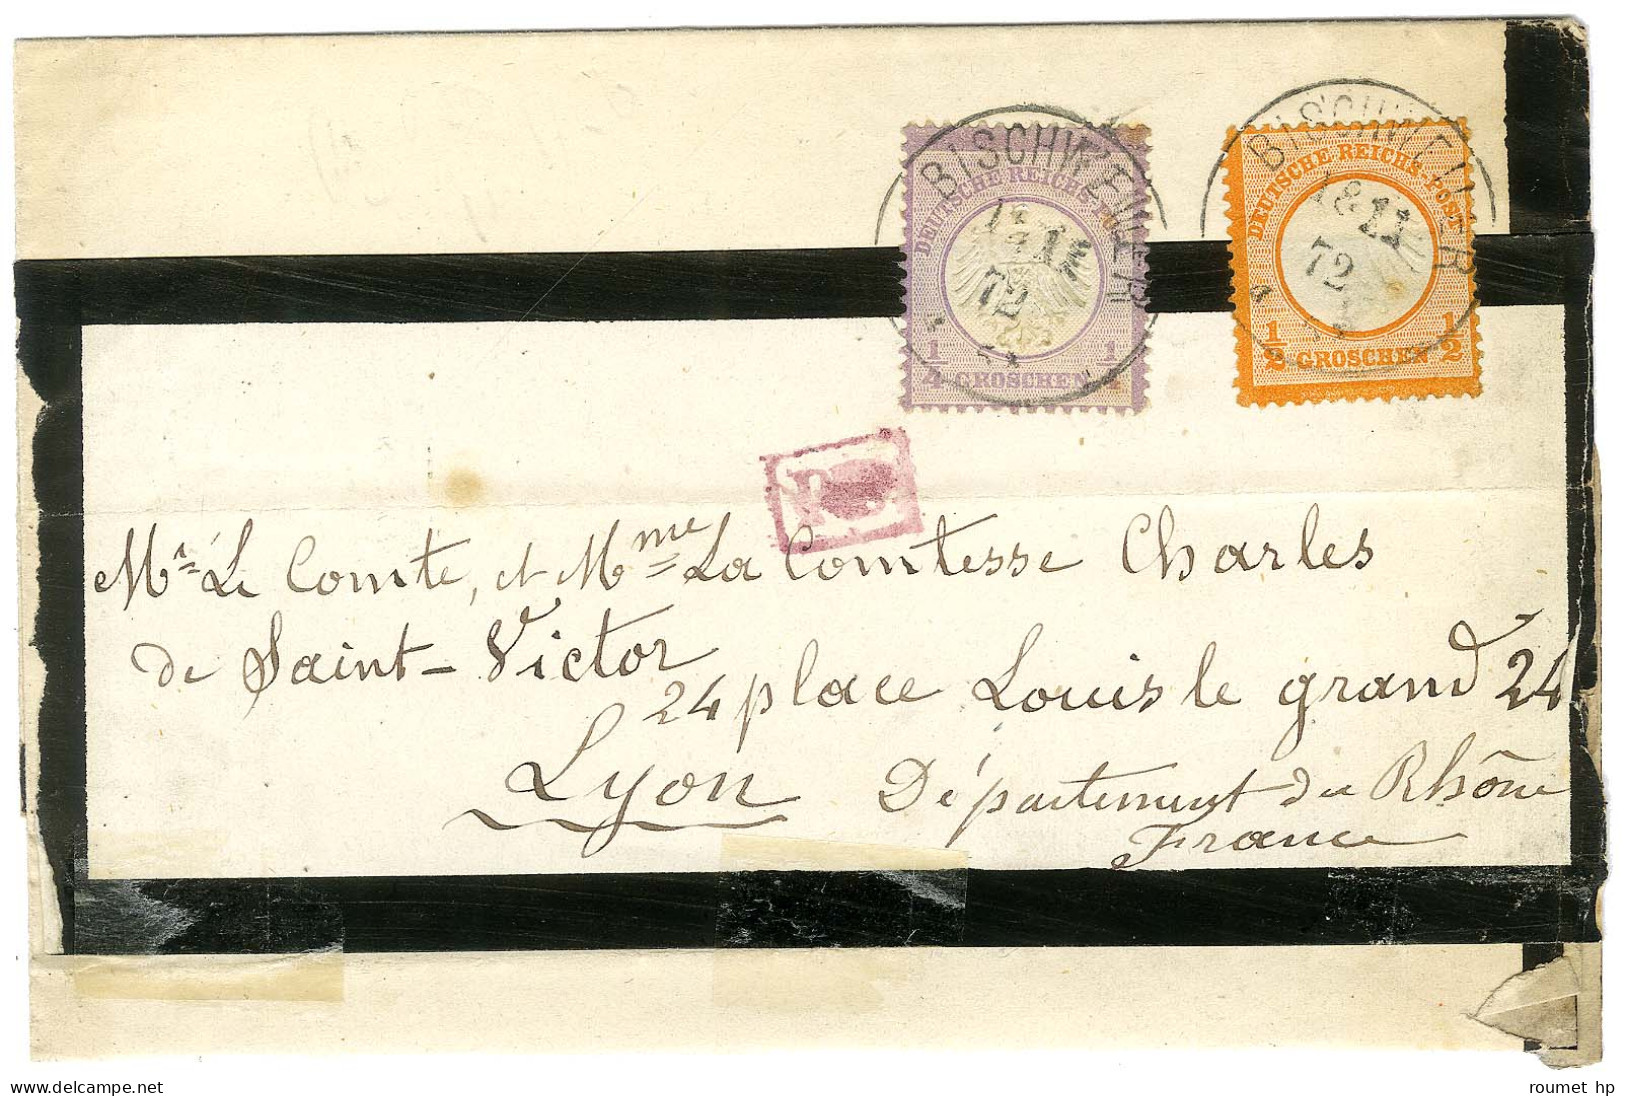 BISCHWEILER
18 11
72
BISCHWEILER
18 11
72
DEUTSCHE REICHS-POST
1/4 GROSCHEN 1/4
DEUTSCHE REICHS-POST
1/2 GROSCHEN 1/2
Mr Le Comte, et Mme La Comtesse Charles
de Saint-Victor
24 place Louis le grand 24
Lyon Département du Rhône
France
roumet hp
www.delcampe.net